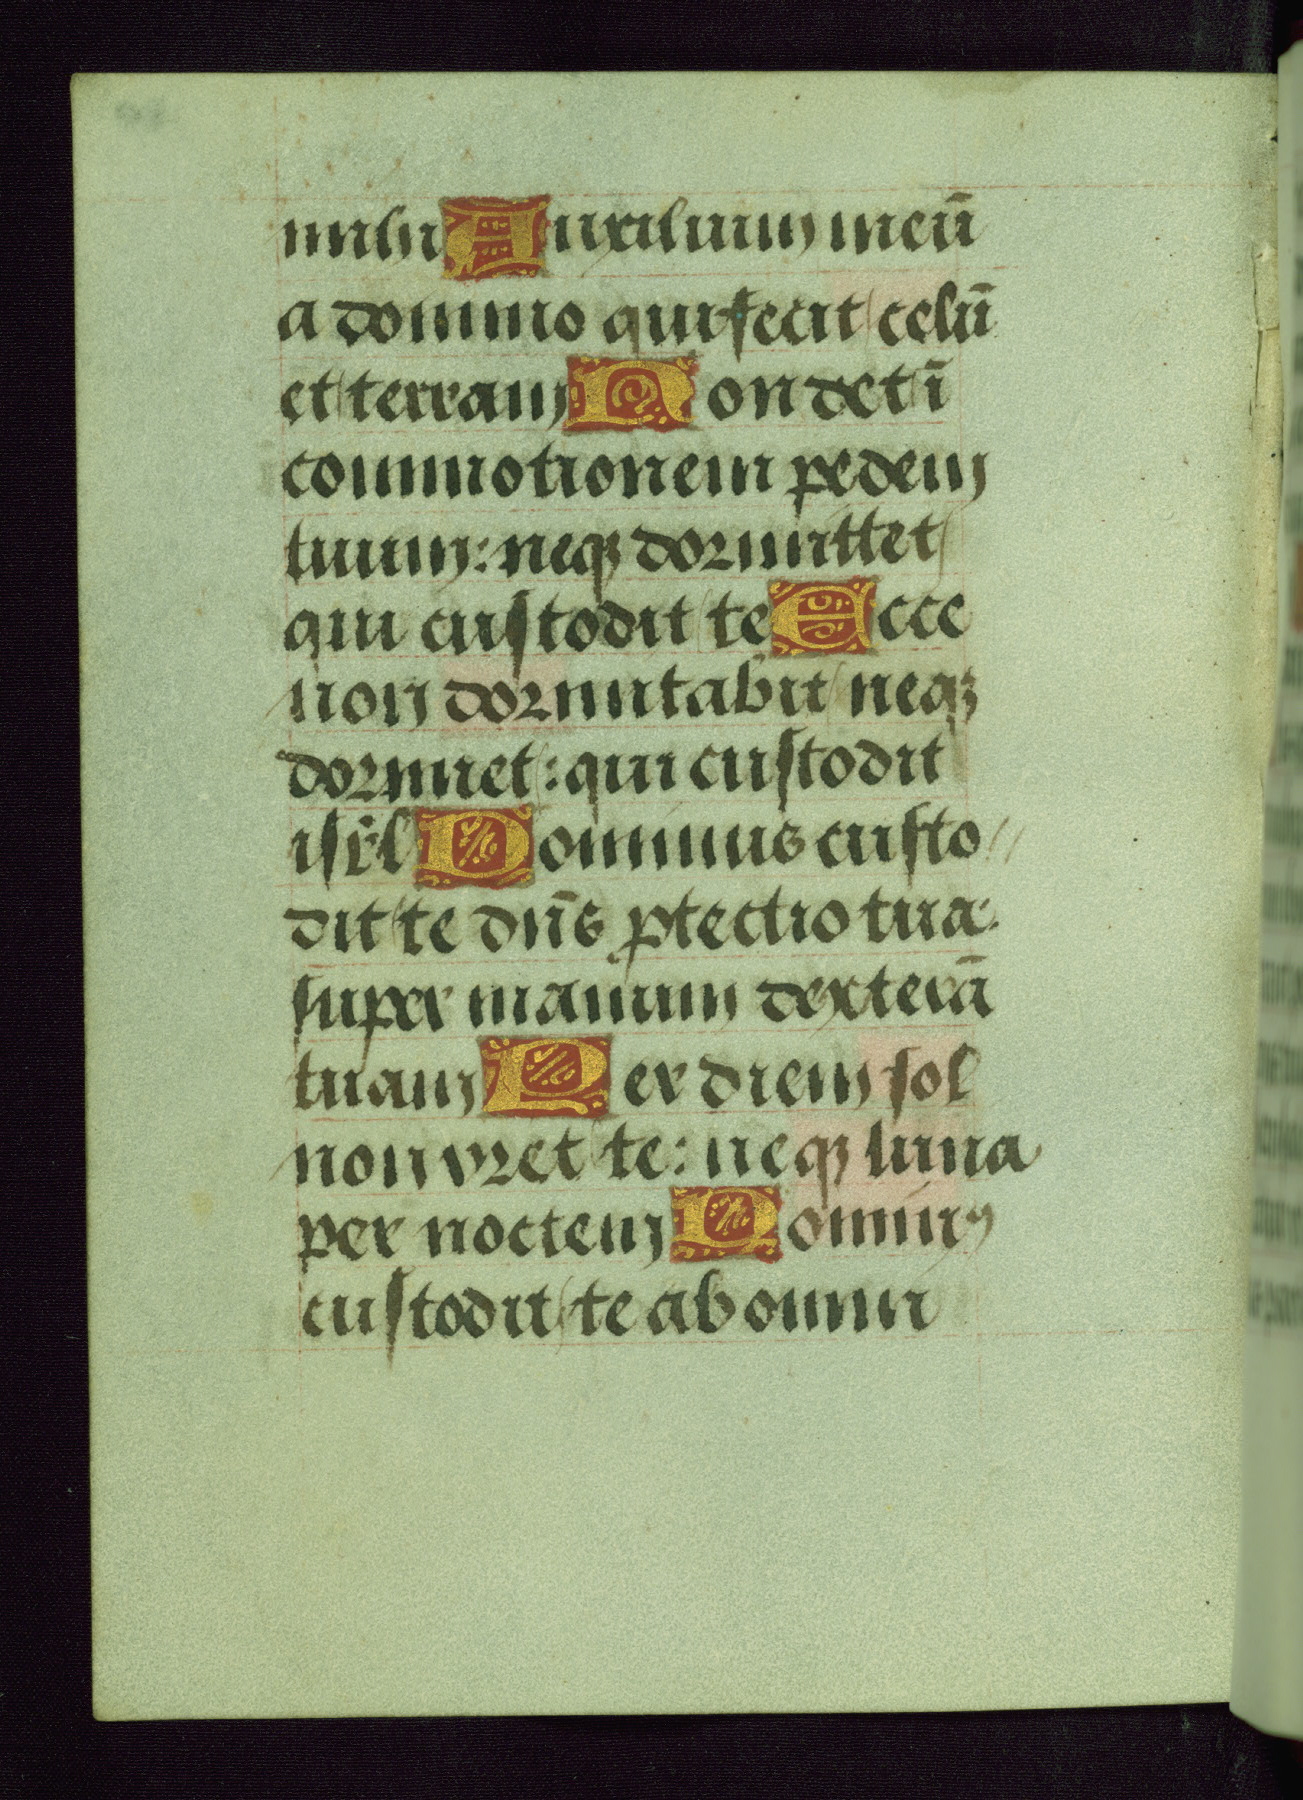 mihi Auxilium meū
a domino qui fecit celū
et terram Non det ī
commotionem pedem
tuum: neqꝫ dormittet
qui custodit te Ecce
non dormitabit neqꝫ
dormiet: qui custodit
isrl̄ Dominus custo//
dit te dn̄s ꝓtectio tua:
super manum dexterā
tuam Per diem sol
non vret te: neqꝫ luna
per noctem Dominꝰ
custodit te ab omni